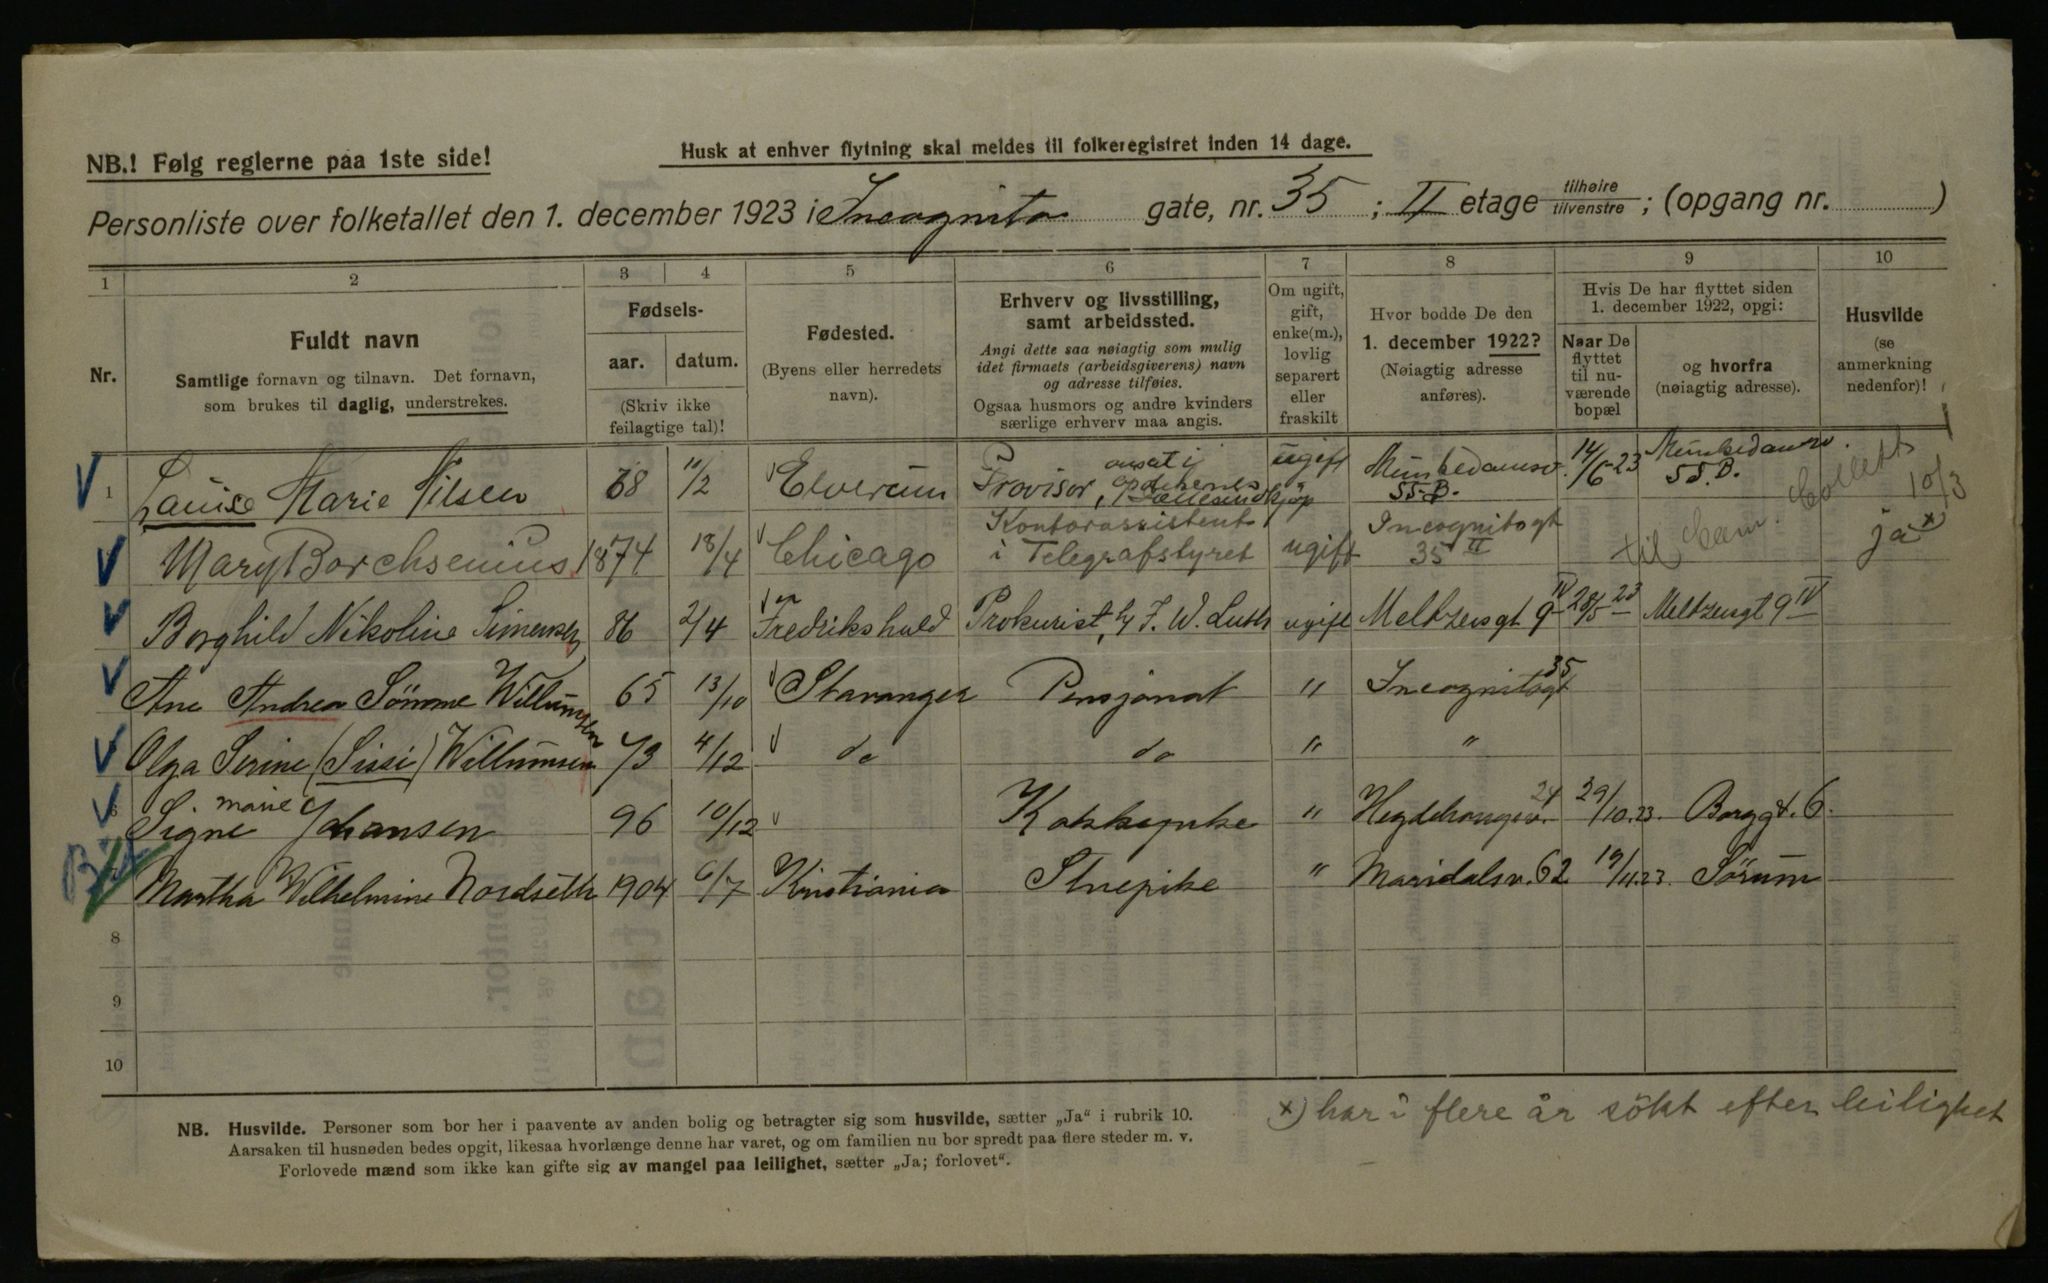 NB.! Følg reglerne paa 1ste side!
Husk at enhver flytning skal meldes til folkeregistret inden 14 dage.
Personliste over folketallet den 1. december 1923 i Incognito gate, nr. 35 ; II etage tilhøire/tilvenstre ; (opgang nr. )
1 2 3 4 5 6 7 8 9 10
Nr.
Fuldt navn
Samtlige fornavn og tilnavn. Det fornavn,
som brukes til daglig, understrekes.
Fødsels-
aar. datum.
(Skriv ikke
feilagtige tal)!
Fødested.
(Byens eller herredets
navn).
Erhverv og livsstilling,
samt arbeidssted.
Angi dette saa nøiagtig som mulig
idet firmaets (arbeidsgiverens) navn
og adresse tilføies.
Ogsaa husmors og andre kvinders
særlige erhverv maa angis.
Om ugift,
gift,
enke(m.),
lovlig
separert
eller
fraskilt
Hvor bodde De den
1. december 1922?
(Nøiagtig adresse
anføres).
Hvis De har flyttet siden
1. december 1922, opgi:
Naar De
flyttet
til nu-
værende
bopæl
og hvorfra
(nøiagtig adresse).
Husvilde
(se
anmerkning
nedenfor)!
1 Louise Marie Nilsen 68 11/2 Elverum Provisor, ansat i apothernes Fællesindkjøp ugift Munkedamsv. 55.B. 14/6 23 Munkedamsv. 55.B.
Mary Borchsenius 1874 18/4 Chicago Kontorassistent i Telegrafstyret ugift Incognitogt 35 II til Cam. Colletts 10/3 ja x
Borghild Nikoline Simensen 86 2/4 Fredrikshald Prokurist, h/ F. W. Luth ugift Meltzersgt 9 IV 28/5 23 Meltzersgt 9 IV
Ane Andrea Sömme Willumsen 65 13/10 Stavanger Pensjonat " Incognitogt 35
Olga Serine (Sissi) Willumsen 73 4/12 do do " "
6 Signe Marie Johansen 96 10/12 Kokkepike " Hegdehaugsv. 24 29/10.23. Borggt. 6.
Martha Wilhelmine Nordseth 1904 6/7 Kristiania Stuepike " Maridalsv. 62 19/11.23. Sørum
8
9
10
NB. Husvilde. Personer som bor her i paavente av anden bolig og betragter sig som husvilde, sætter „Ja" i rubrik 10.
Aarsaken til husnøden bedes opgit, likesaa hvorlænge denne har varet, og om familien nu bor spredt paa flere steder m. v.
Forlovede mænd som ikke kan gifte sig av mangel paa leilighet, sætter „Ja; forlovet".
x) har i flere år sökt efter leilighet